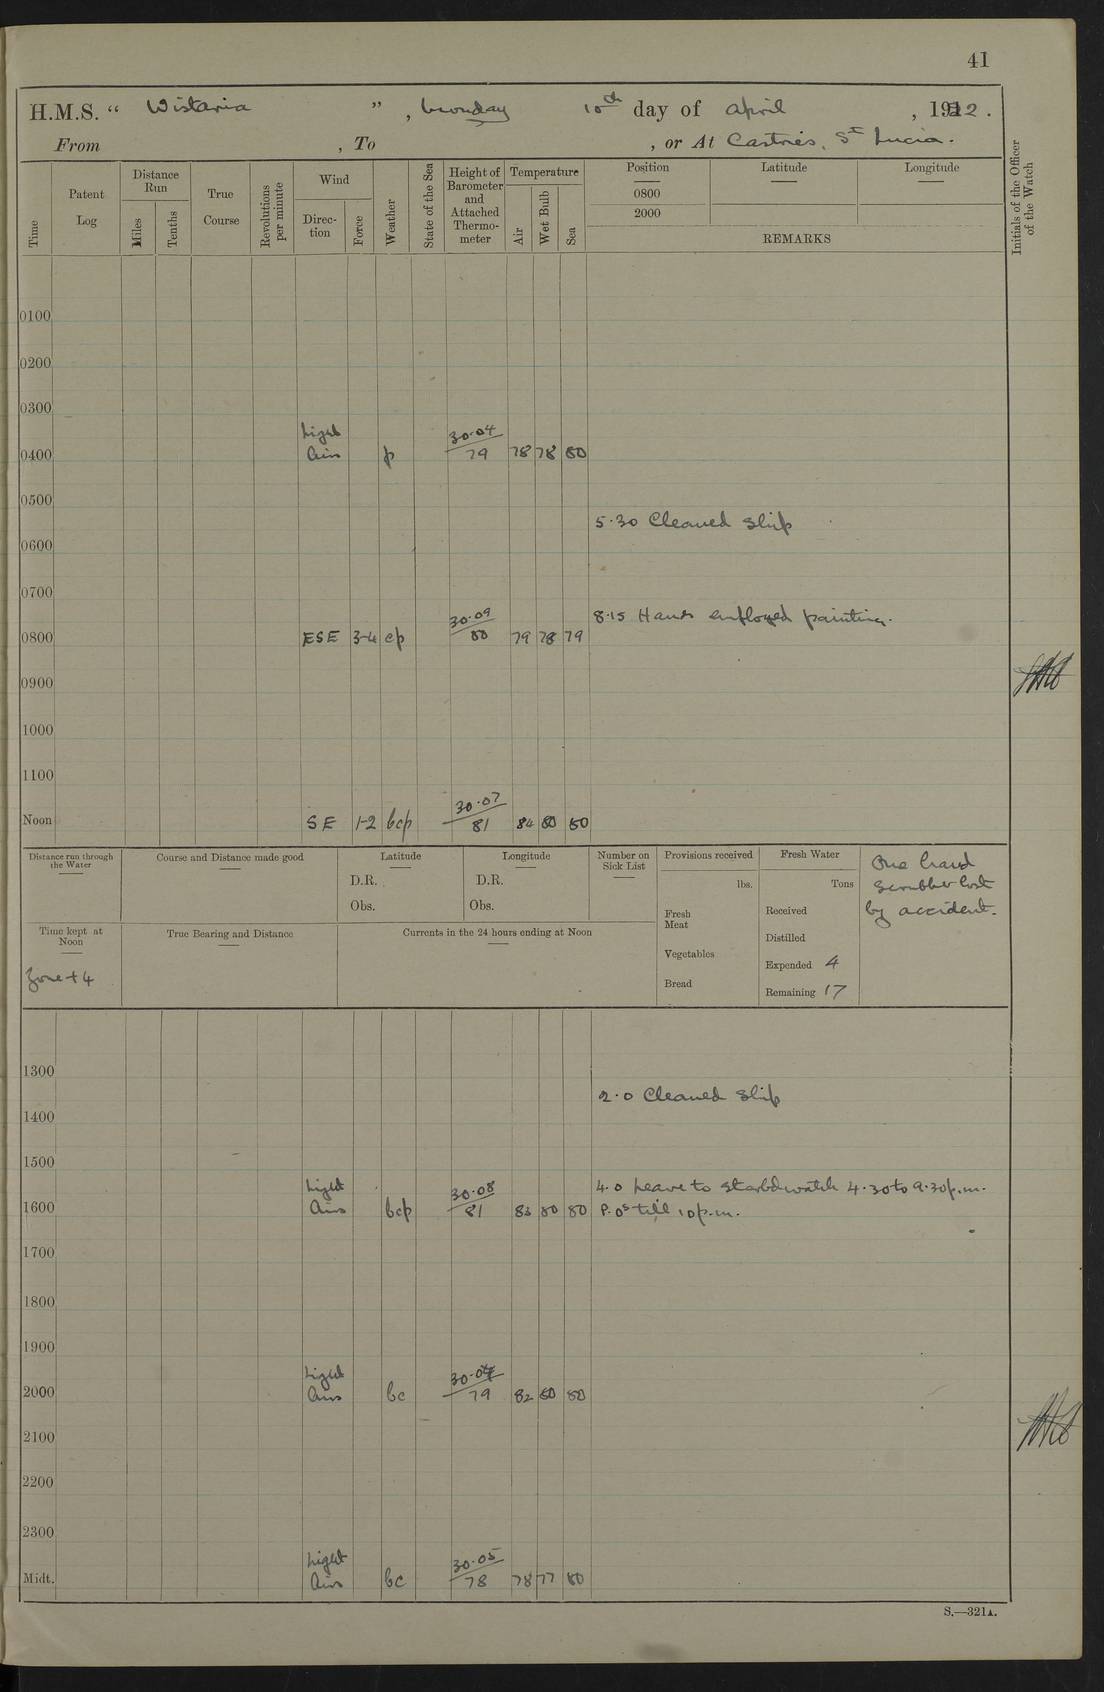 41
H.M.S. “ Wistaria ” , Monday 10th day of April , 1922 .
From , To , or At Castries, St Lucia.
Time
Patent Log
Distance Run
Miles
Tenths
True Course
Revolutions per minute
Wind
Direc-tion
Force
Weather
State of the Sea
Height of Barometer and Attached Thermo-meter
Temperature
Air
Wet Bulb
Sea
Position Latitude Longitude
0800
2000
REMARKS
Initials of the Officer of the Watch
0100
0200
0300
0400 Light Airs p 30.04 79 78 78 80
0500
5.30 Cleaned Ship
0600
0700
8.15 Hands employed painting.
0800 ESE 3-4 cp 30.09 80 79 78 79
0900
1000
1100
Noon SE 1-2 bcp 30.07 81 84 80 80
Distance run through the Water
Course and Distance made good
Latitude
D.R.
Obs.
Longitude
D.R.
Obs.
Number on Sick List
Provisions received
lbs.
Fresh Meat
Vegetables
Bread
Fresh Water
Tons
Received
Distilled
Expended 4
Remaining 17
One hand
Scrubber lost
by accident.
Time kept at Noon
Zone + 4
True Bearing and Distance
Currents in the 24 hours ending at Noon
1300
2.0 Cleaned Ship
1400
1500
4.0 Leave to Starbd watch 4.30 to 9.30 p.m.
1600 Light Airs bcp 30.08 81 83 80 80 P.Os till 10 p.m.
1700
1800
1900
2000 Light Airs bc 79 82 80 80
2100
2200
2300
Midt. Light Airs bc 30.05 78 78 77 80
S.—321A.